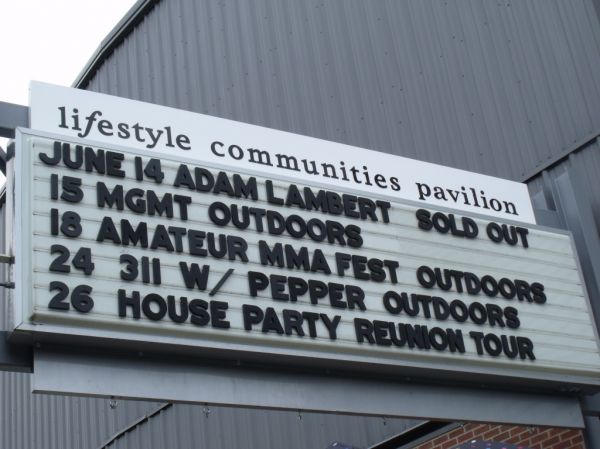 lifestyle communities pavilion
JUNE 14 ADAM LAMBERT SOLD OUT
15 MGMT OUTDOORS
18 AMATEUR MMA FEST OUTDOORS
24 311 W/ PEPPER OUTDOORS
26 HOUSE PARTY REUNION TOUR